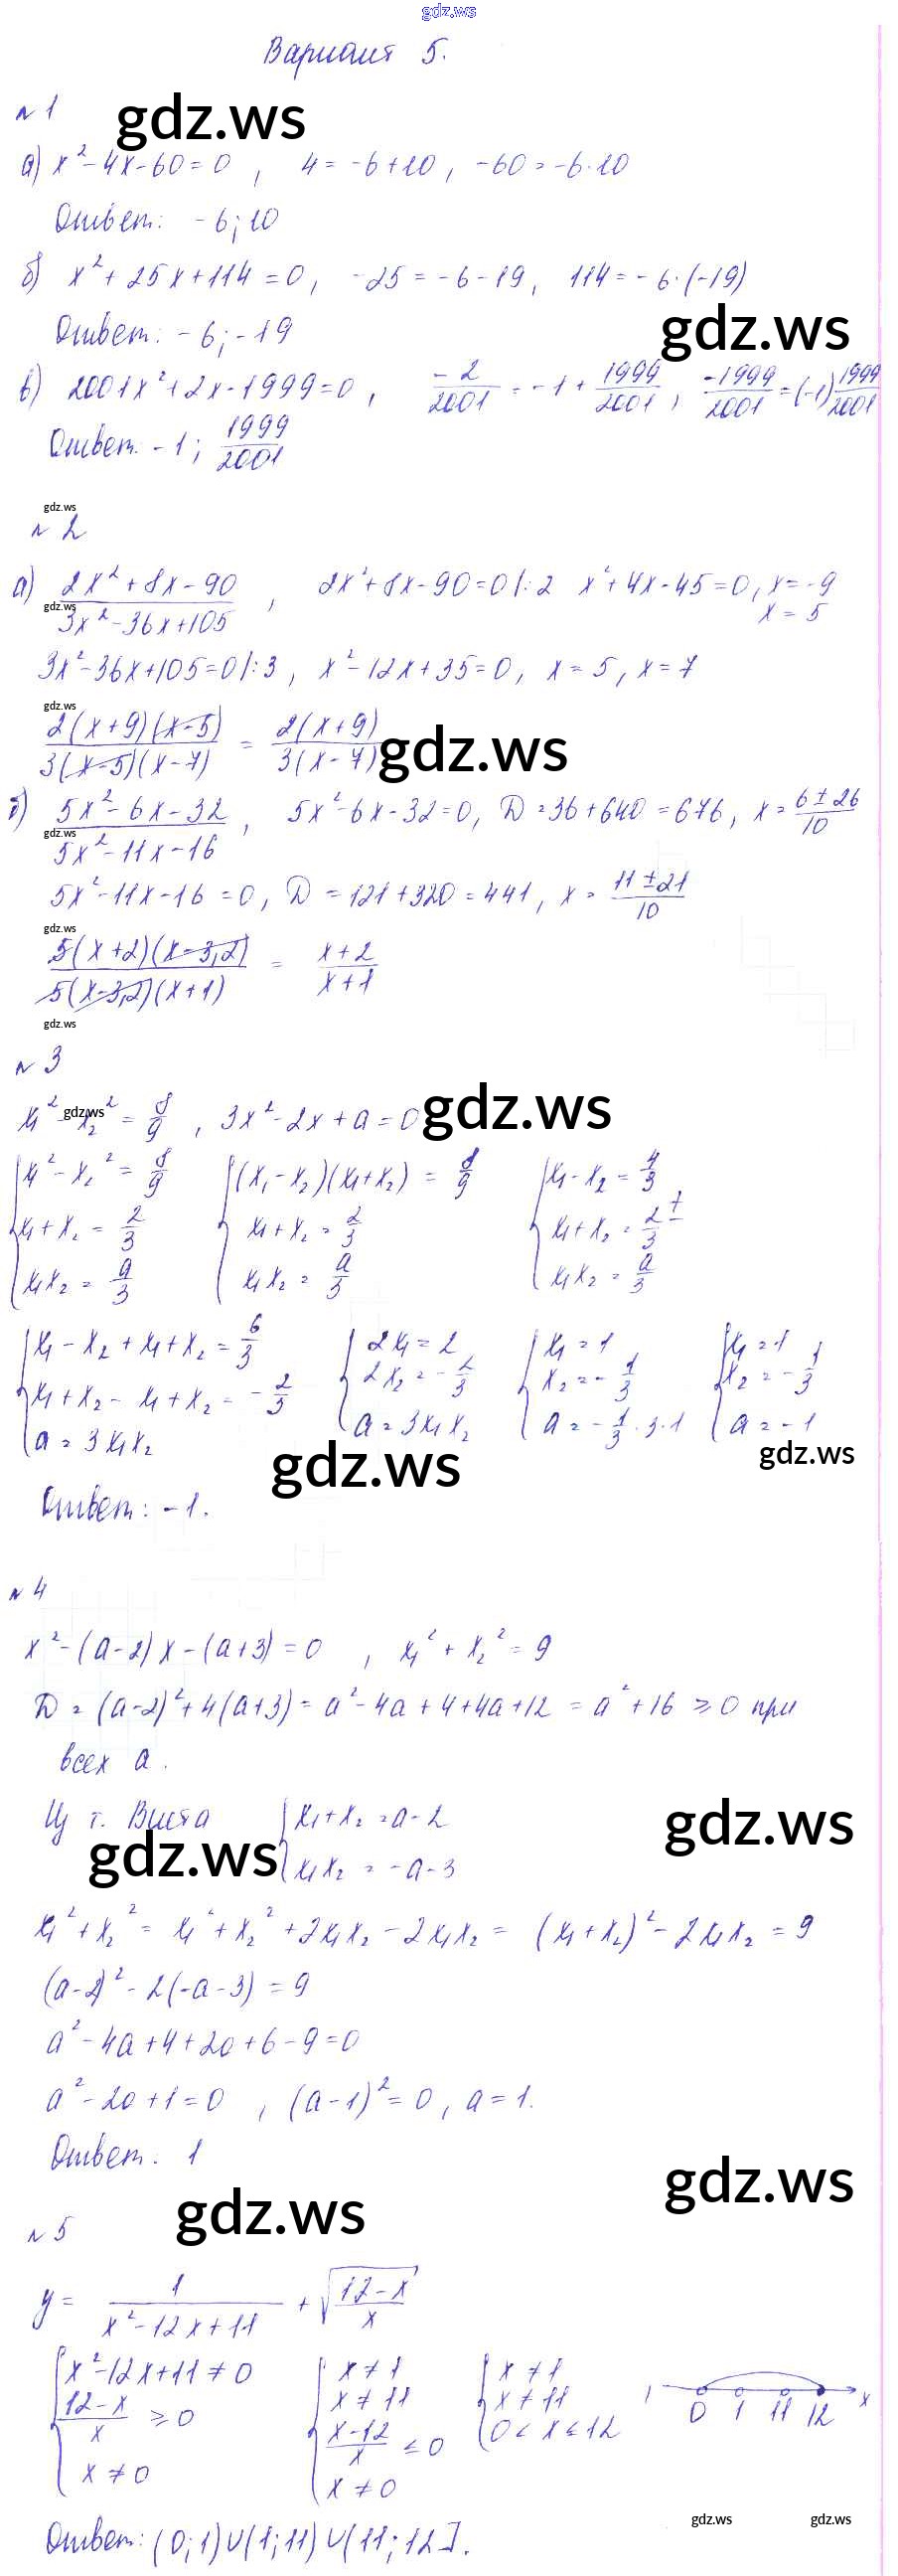 gdz.ws
Вариант 5.
№ 1
gdz.ws
а) x² - 4x - 60 = 0 , 4 = -6 + 10 , -60 = -6 · 10
Ответ: -6; 10
б) x² + 25x + 114 = 0 , -25 = -6 - 19 , 114 = -6 · (-19)
Ответ: -6; -19
gdz.ws
в) 2001x² + 2x - 1999 = 0 , -2/2001 = -1 + 1999/2001 , -1999/2001 = (-1) 1999/2001
Ответ: -1; 1999/2001
gdz.ws
№ 2
а) (2x² + 8x - 90)/(3x² - 36x + 105) , 2x² + 8x - 90 = 0 |: 2 x² + 4x - 45 = 0 , x = -9
x = 5
gdz.ws
3x² - 36x + 105 = 0 |: 3 , x² - 12x + 35 = 0 , x = 5 , x = 7
gdz.ws
2(x + 9)(x - 5)/3(x - 5)(x - 7) = 2(x + 9)/3(x - 7)
gdz.ws
б) (5x² - 6x - 32)/(5x² - 11x - 16) , 5x² - 6x - 32 = 0 , D = 36 + 640 = 676 , x = (6 ± 26)/10
gdz.ws
5x² - 11x - 16 = 0 , D = 121 + 320 = 441 , x = (11 ± 21)/10
gdz.ws
5(x + 2)(x - 3,2)/5(x - 3,2)(x + 1) = (x + 2)/(x + 1)
gdz.ws
№ 3
x₁² - x₂² = 8/9 , 3x² - 2x + a = 0
gdz.ws
gdz.ws
{ x₁² - x₂² = 8/9 { (x₁ - x₂)(x₁ + x₂) = 8/9 { x₁ - x₂ = 4/3
x₁ + x₂ = 2/3 x₁ + x₂ = 2/3 x₁ + x₂ = 2/3 ±
x₁x₂ = a/3 x₁x₂ = a/3 x₁x₂ = a/3
{ x₁ - x₂ + x₁ + x₂ = 6/3 { 2x₁ = 2 { x₁ = 1 { x₁ = 1
x₁ + x₂ - x₁ + x₂ = -2/3 2x₂ = -2/3 x₂ = -1/3 x₂ = -1/3
a = 3x₁x₂ a = 3x₁x₂ a = -1/3 · 3 · 1 a = -1
gdz.ws
gdz.ws
Ответ: -1.
№ 4
x² - (a - 2)x - (a + 3) = 0 , x₁² + x₂² = 9
D = (a - 2)² + 4(a + 3) = a² - 4a + 4 + 4a + 12 = a² + 16 ≥ 0 при
всех a.
Из т. Виета { x₁ + x₂ = a - 2
x₁x₂ = -a - 3
gdz.ws
gdz.ws
x₁² + x₂² = x₁² + x₂² + 2x₁x₂ - 2x₁x₂ = (x₁ + x₂)² - 2x₁x₂ = 9
(a - 2)² - 2(-a - 3) = 9
a² - 4a + 4 + 2a + 6 - 9 = 0
a² - 2a + 1 = 0 , (a - 1)² = 0 , a = 1.
Ответ: 1
gdz.ws
gdz.ws
№ 5
y = 1/(x² - 12x + 11) + √((12 - x)/x)
{ x² - 12x + 11 ≠ 0 { x ≠ 1 { x ≠ 1
(12 - x)/x ≥ 0 x ≠ 11 x ≠ 11
x ≠ 0 (x - 12)/x ≤ 0 0 < x ≤ 12
x ≠ 0
0 1 11 12 x
Ответ: (0; 1) ∪ (1; 11) ∪ (11; 12].
gdz.ws
gdz.ws